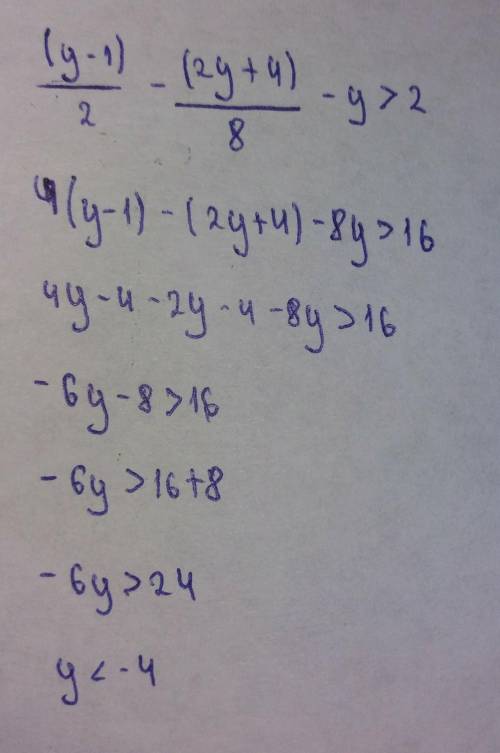 (y-1)/2 - (2y+4)/8 - y > 2
4(y-1) - (2y+4) - 8y > 16
4y - 4 - 2y - 4 - 8y > 16
- 6y - 8 > 16
- 6y > 16 + 8
- 6y > 24
y < - 4